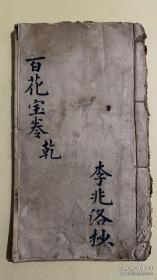 百花宝卷 乾
李兆洛抄